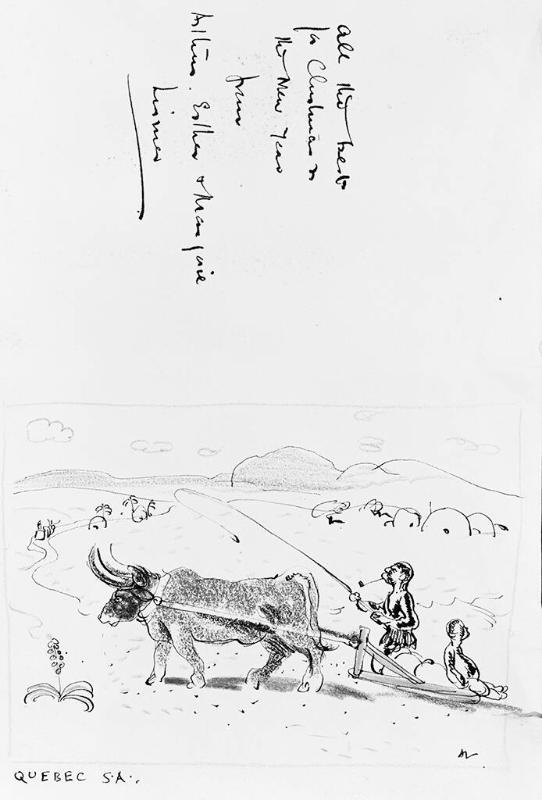 all the best
for Christmas &
the New Year
from
Arthur, Esther & Marjorie
Lismer
AL
QUEBEC S.A.,